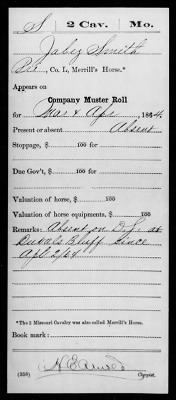 S | 2 Cav. | Mo.
Jabez Smith
Pvt, Co. L, Merrill's Horse.*
Appears on
Company Muster Roll
for Mar & Apr, 1864.
Present or absent Absent
Stoppage, $ 100 for
Due Gov't, $ 100 for
Valuation of horse, $ 100
Valuation of horse equipments, $ 100
Remarks: Absent on D.S. at
Duvals Bluff since
Apl 2/64
*The 2 Missouri Cavalry was also called Merrill's Horse.
Book mark:
(358) Copyist.